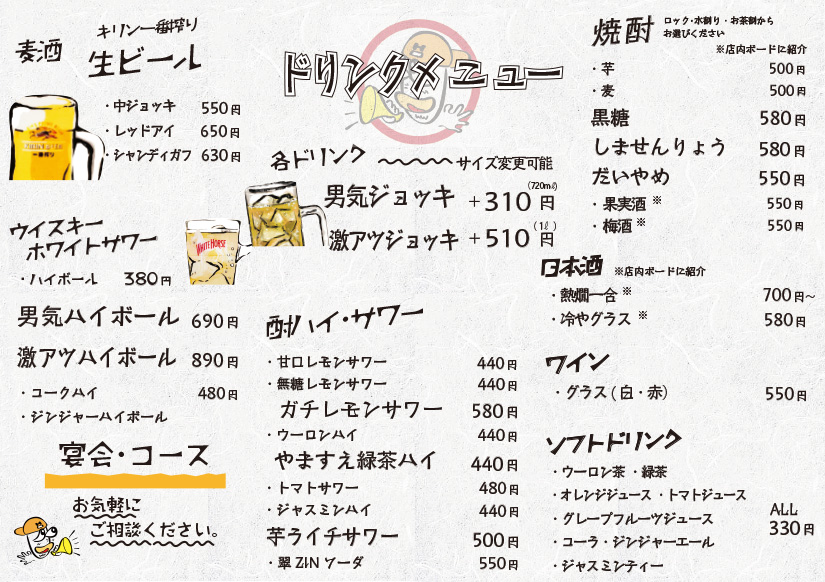 ドリンクメニュー
麦酒
キリン一番搾り
生ビール
・中ジョッキ 550円
・レッドアイ 650円
・シャンディガフ 630円
一番搾り
各ドリンク サイズ変更可能
男気ジョッキ +310円 (720㎖)
激アツジョッキ +510円 (1ℓ)
ウイスキー
ホワイトサワー
WHITE HORSE
・ハイボール 380円
男気ハイボール 690円
激アツハイボール 890円
・コークハイ 480円
・ジンジャーハイボール
宴会・コース
お気軽に
ご相談ください。
酎ハイ・サワー
・甘口レモンサワー 440円
・無糖レモンサワー 440円
ガチレモンサワー 580円
・ウーロンハイ 440円
やますえ緑茶ハイ 440円
・トマトサワー 480円
・ジャスミンハイ 440円
芋ライチサワー 500円
・翠ZINソーダ 550円
焼酎
ロック・水割り・お茶割から
お選びください
※店内ボードに紹介
・芋 500円
・麦 500円
黒糖 580円
しませんりょう 580円
だいやめ 550円
・果実酒 ※ 550円
・梅酒 ※ 550円
日本酒 ※店内ボードに紹介
・熱燗一合 ※ 700円~
・冷やグラス ※ 580円
ワイン
・グラス(白・赤) 550円
ソフトドリンク
・ウーロン茶・緑茶
・オレンジジュース・トマトジュース
・グレープフルーツジュース
・コーラ・ジンジャーエール
・ジャスミンティー
ALL
330円